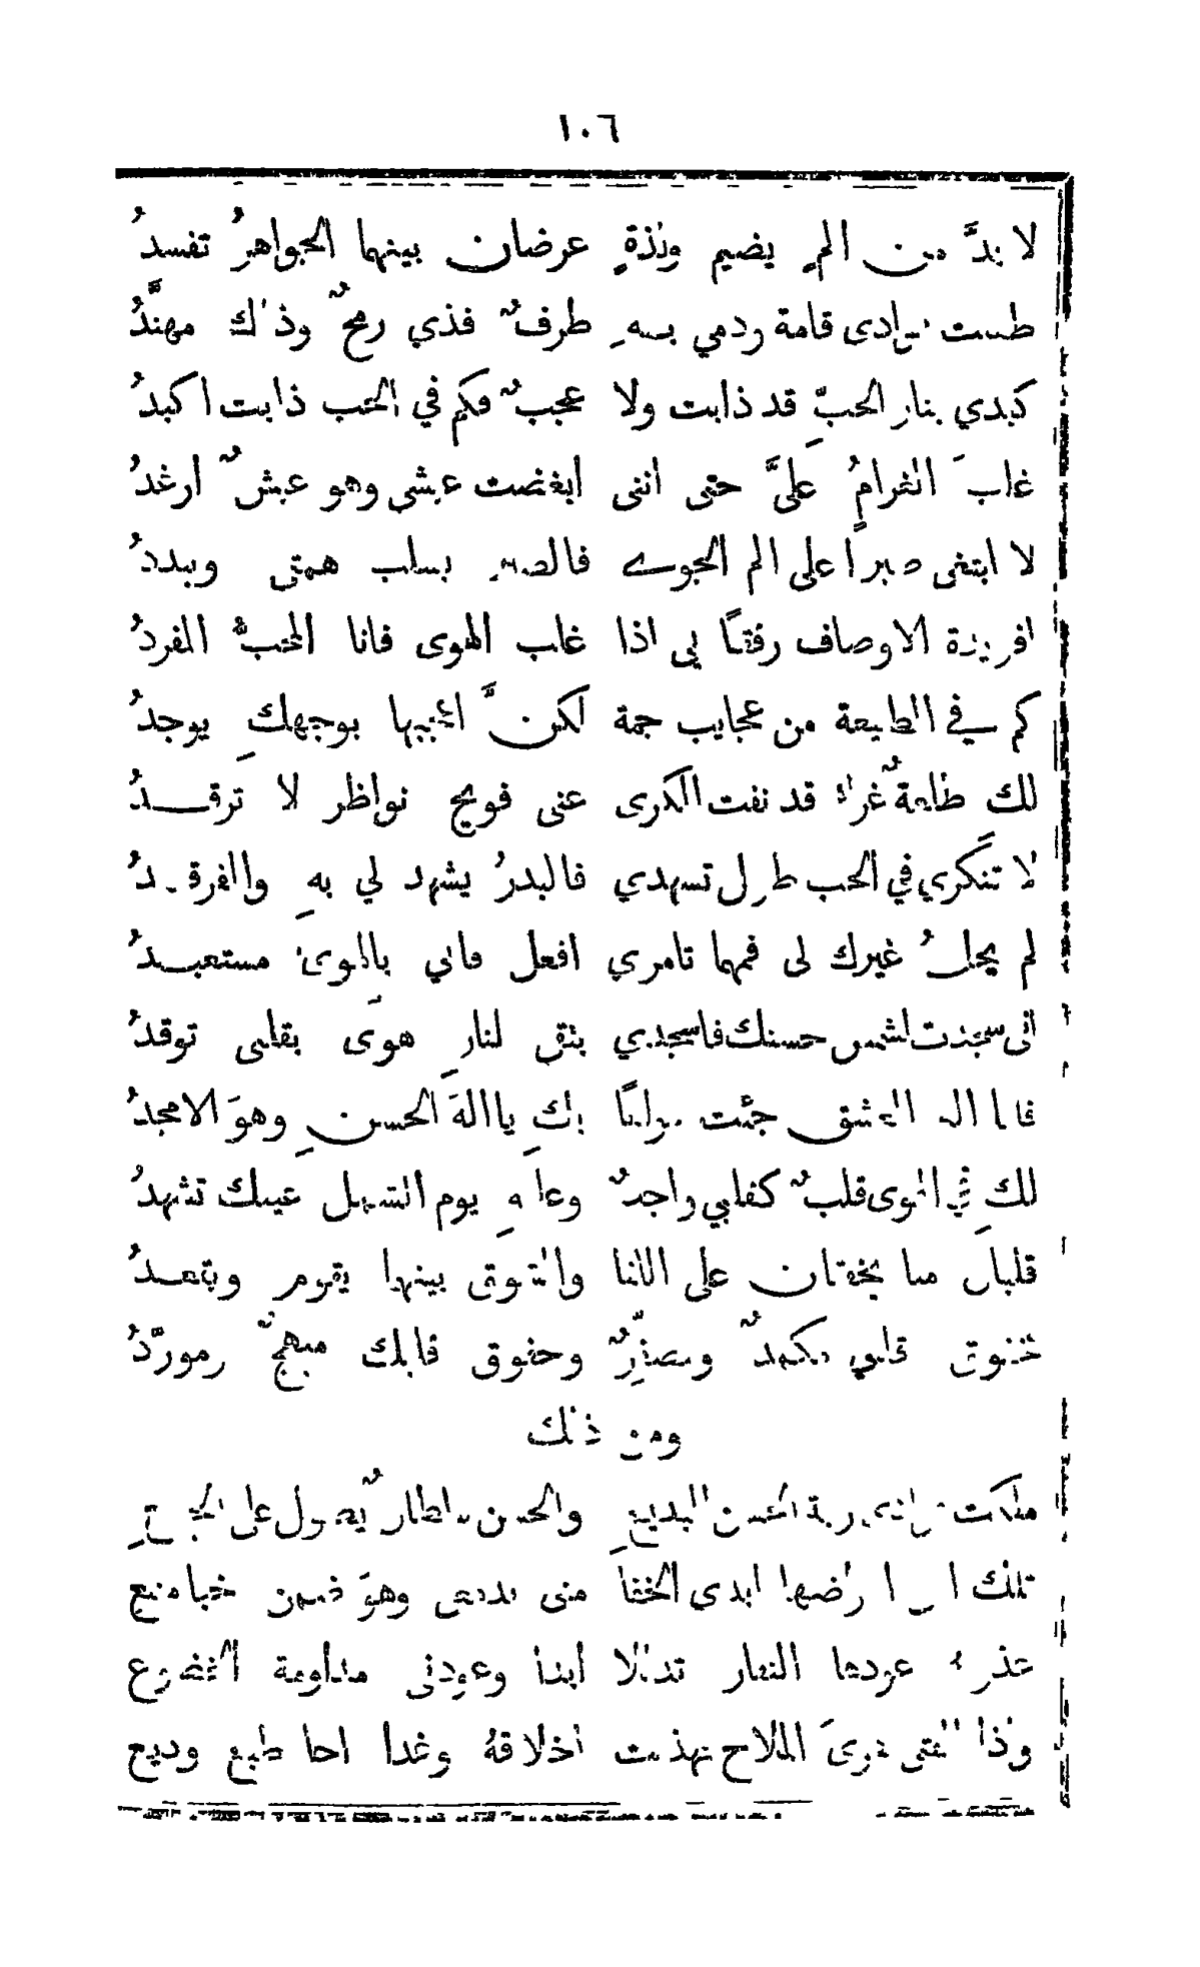 ١٠٦
لا بدَّ من الم يضيم ولذةٍ عرضان بينهما الجواهرُ تفسدُ
طعنت فوادى قامة ودمي بسه طرفٌ فذي رمحٌ وذلك مهنَّدُ
كبدي بنار الحبِّ قد ذابت ولا عجبٌ فكم في الحب ذابت اكبدُ
غلبَ الغرامُ عليَّ حتى اننى ابغضت عيشى وهو عيشٌ ارغدُ
لا ابتغى صبرًا على الم الجوے فالصبر يسلب همتى ويبددُ
افريدة الاوصاف رفقًا بى اذا غلب الهوى فانا المحبُّ المفردُ
كم في الطبيعة من عجايب جمة لكنَّ اعجبها بوجهكِ يوجدُ
لك طلعةٌ غراء قد نفت الكرى عنى فويح نواظر لا ترقدُ
لا تنكري في الحب طول تسهدي فالبدرُ يشهد لي بهِ والفرقدُ
لم يحلُ غيرك لى فمهما تامري افعل فاني بالهوى مستعبدُ
انى سجدت لشمس حسنك فاسجدي بتقى لنارِ هوًى بقلبى توقدُ
فانا اله العشق جئت مولعًا بكِ يا الهَ الحسنِ وهوَ الامجدُ
لكِ في الهوى قلبٌ كقلبي واجدٌ وعليهِ يوم الشمل عينك تشهدُ
قلبان ما يخفقان على اللقا والتوق بينهما يقوم ويقعدُ
خفوق قلبى مكمدٌ ومصفِّرٌ وخفوق قلبك مبهجٌ ومورّدُ
ومن ذلك
ملكت فوادى ربة الحسن البديعِ والحسن سلطانٌ يصول على الجميعِ
تلك ارضها ابدى الخفا منى وهوَ ضمن خبا منيع
عودها النفار تدللا ابدا وعودنى مداومة الخضوع
وذا الفتى الملاح تهذبت اخلاقهُ وغدا اخا طبع وديع